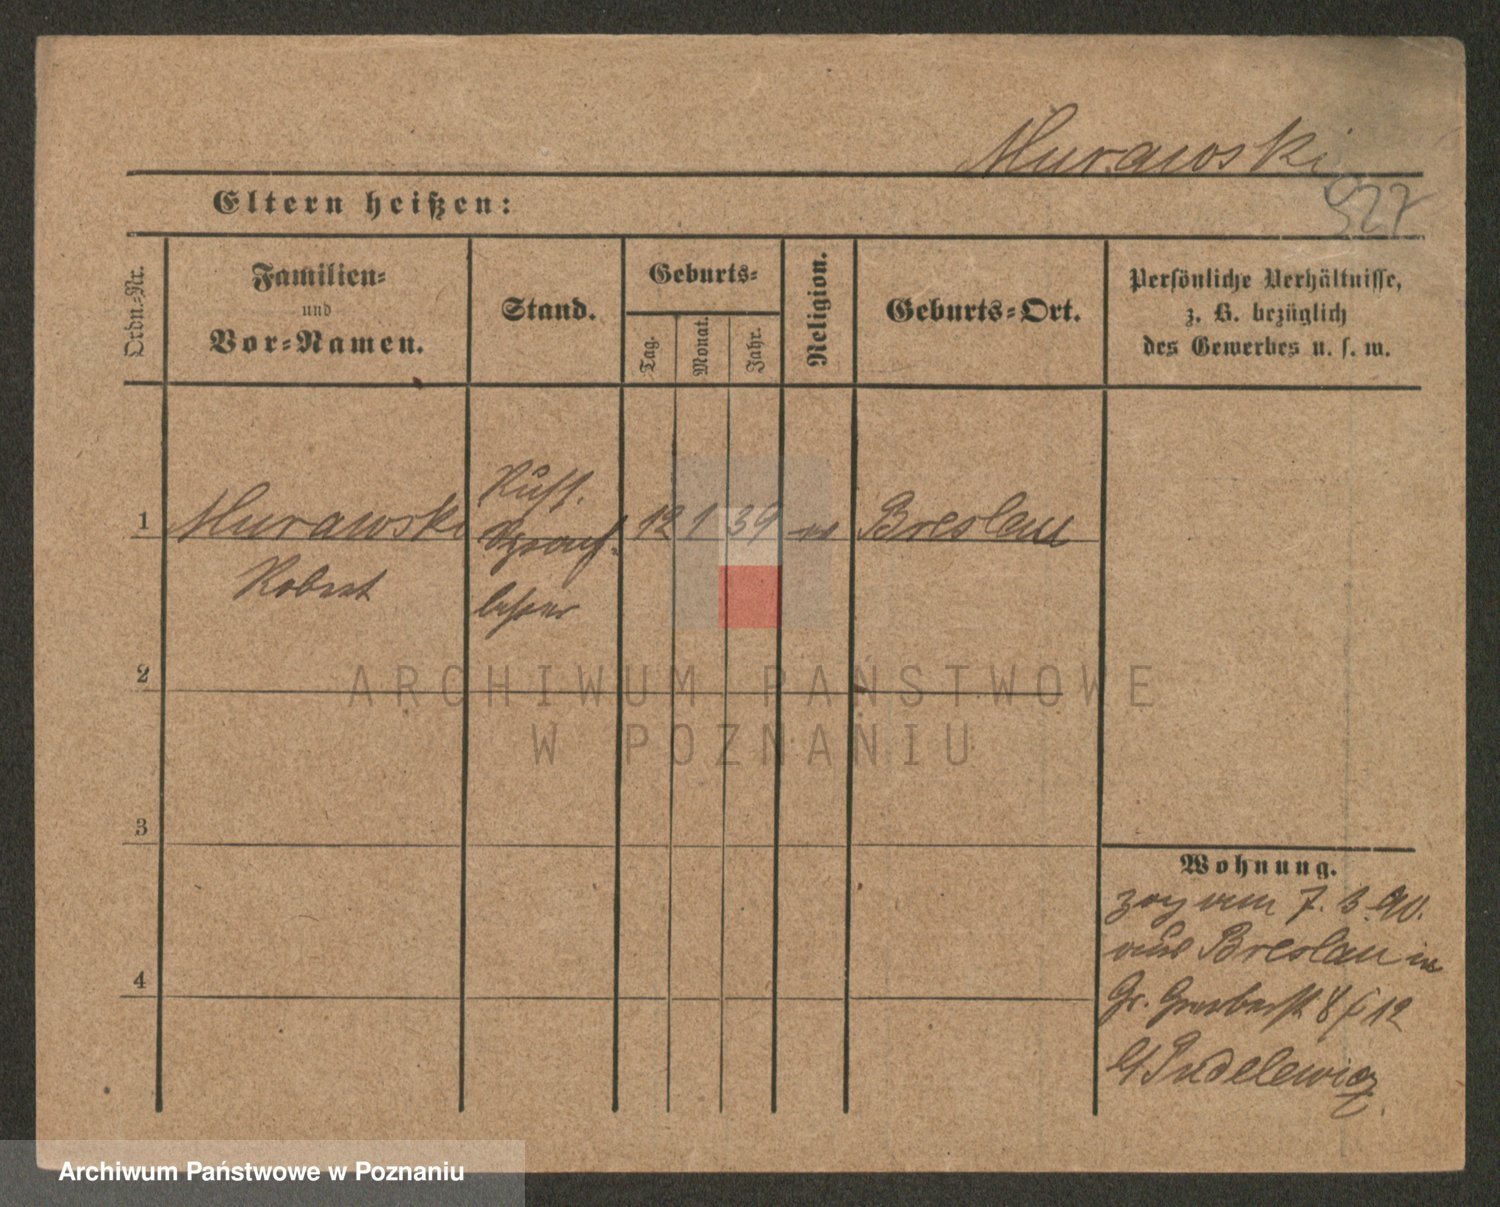 Murawski
927
Eltern heißen:
Ordn.-Nr.
Familien-
und
Vor-Namen.
Stand.
Geburts-
Tag.
Monat.
Jahr.
Religion.
Geburts-Ort.
Persönliche Verhältnisse,
z. B. bezüglich
des Gewerbes u. s. w.
1
Murawski
Robert
12
1
39
Breslau
2
3
4
Wohnung.
zog vom 7. 3. 90.
aus Breslau in
Gr. Gerberstr 8 12
Pudelewicz
ARCHIWUM PAŃSTWOWE
W POZNANIU
Archiwum Państwowe w Poznaniu